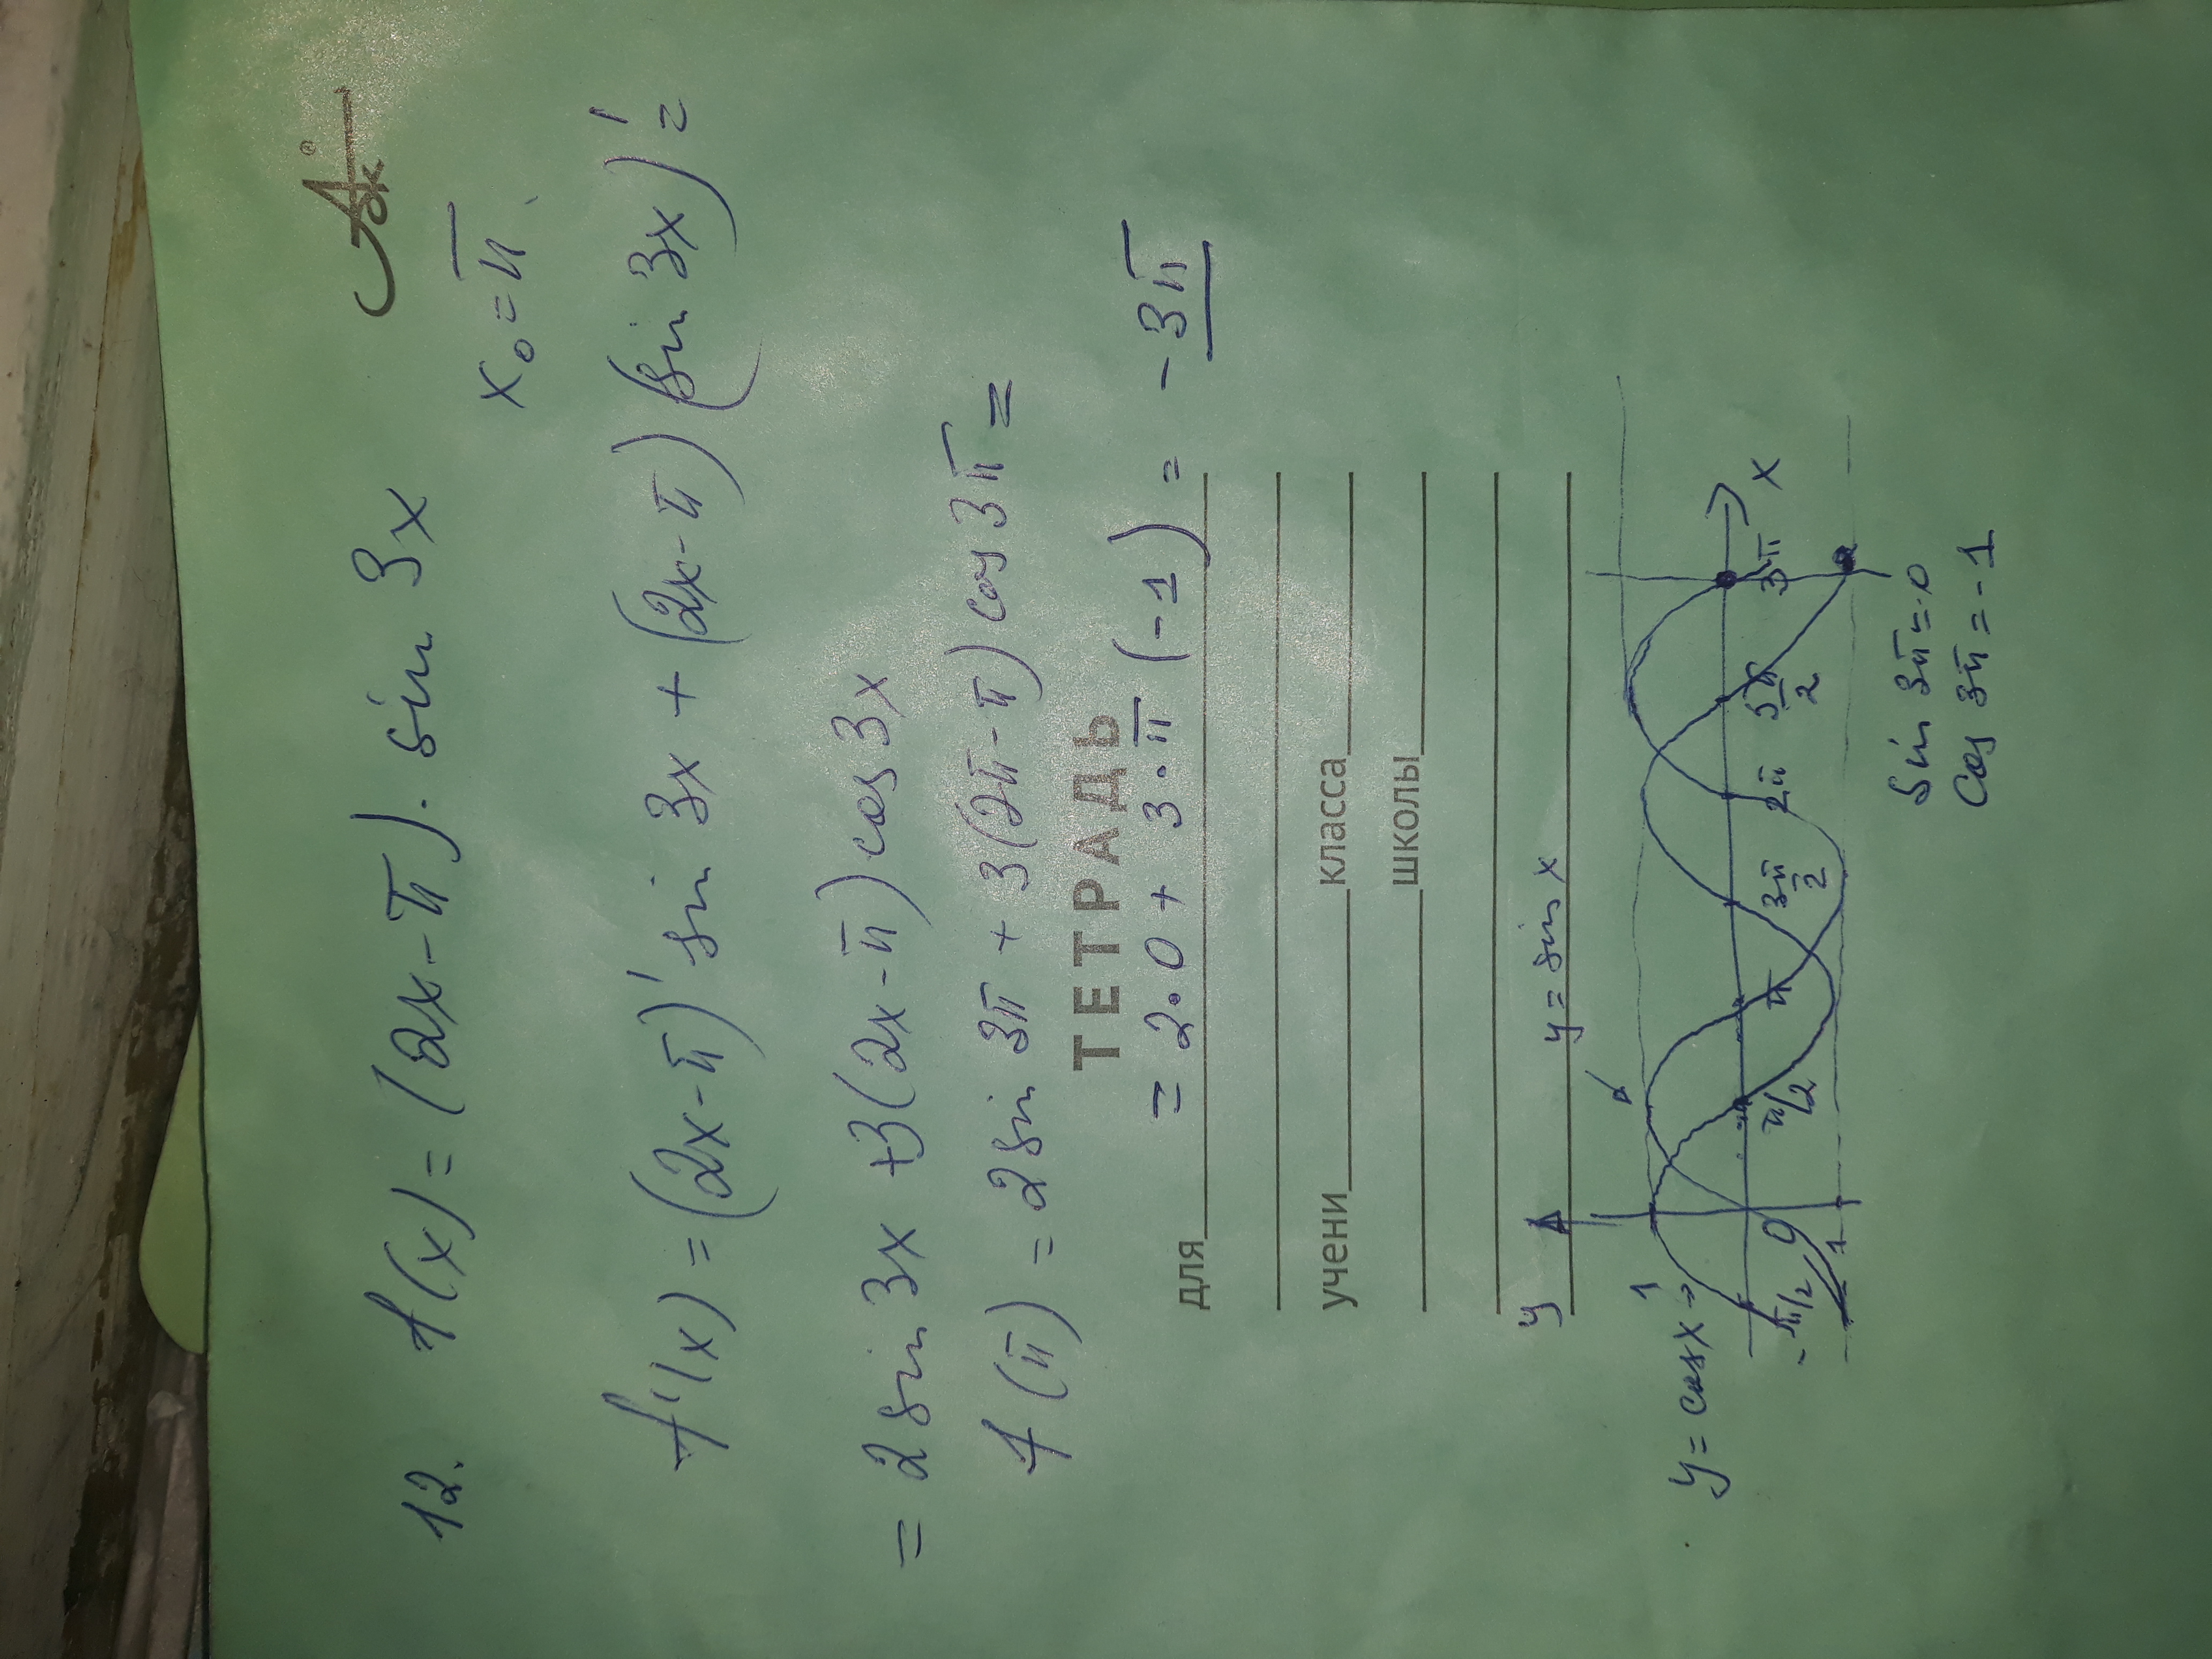 Ask®
12. f(x) = (2x-π). sin 3x
x₀=π
f'(x) = (2x-π)' sin 3x + (2x-π) (sin 3x)' =
= 2 sin 3x +3(2x-π) cos 3x
f(π) = 2 sin 3π + 3(2π-π) cos 3π =
ТЕТРАДЬ
= 2·0 + 3·π (-1) = -3π
для
учени класса
школы
y y = sin x
y = cos x 1
-π/2 0 π/2 π 3π/2 2π 5π/2 3π x
-1
sin 3π = 0
cos 3π = -1